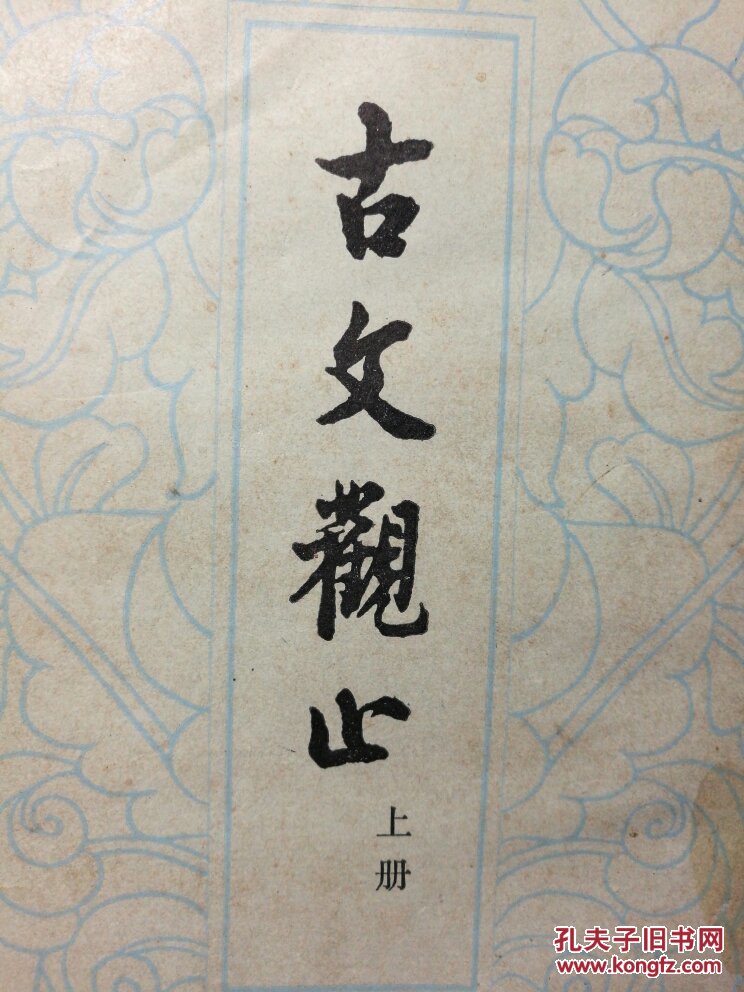 古文觀止
上册
孔夫子旧书网
www.kongfz.com